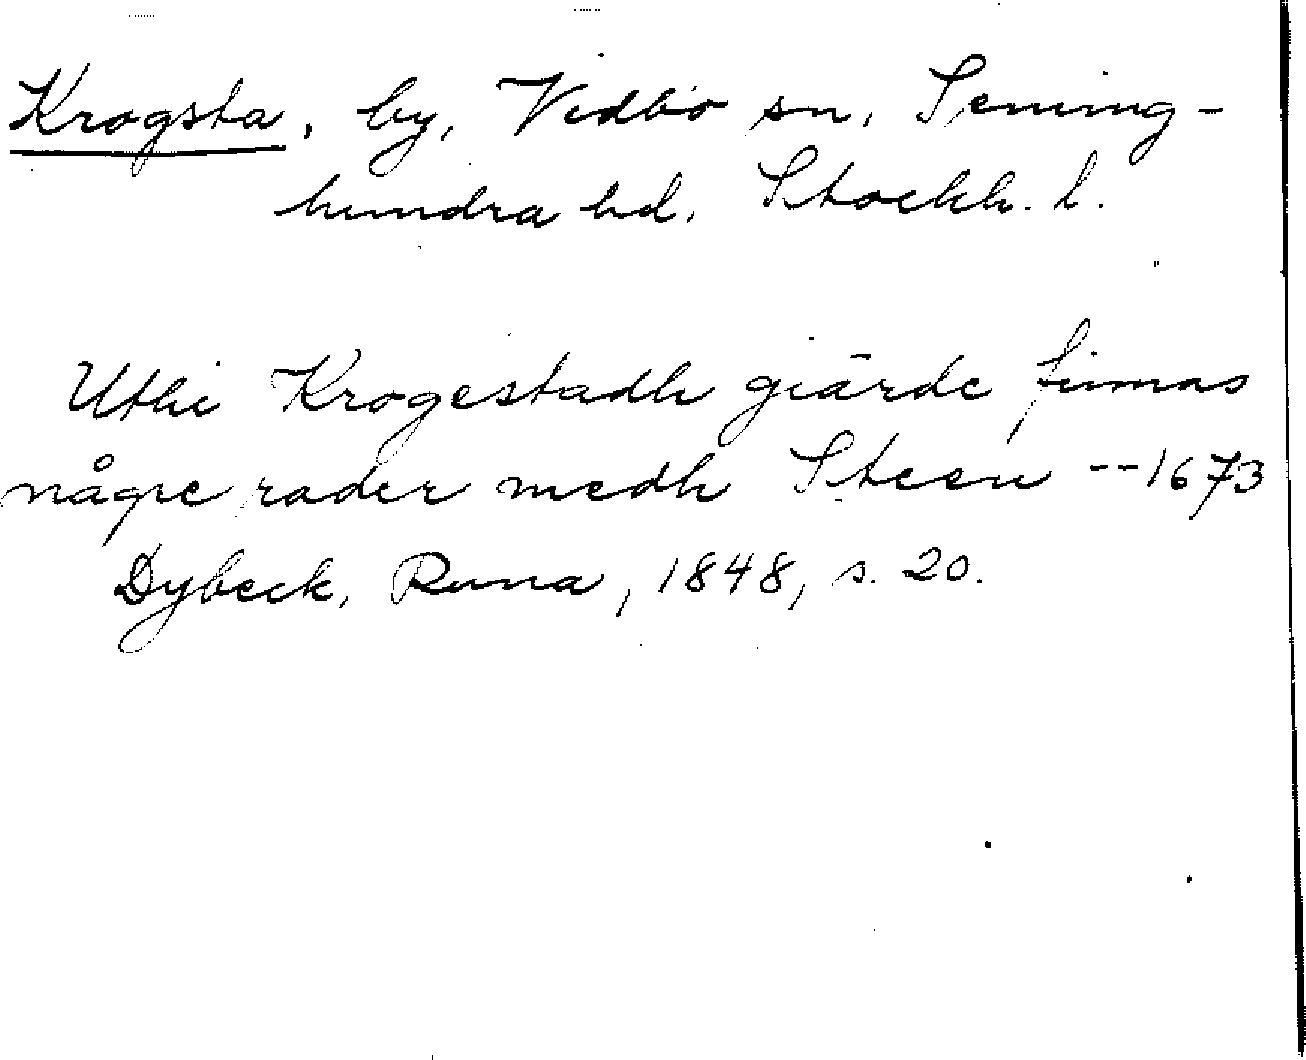 Krogsta, by, Vidbo sn, Seming-
hundra hd. Stockh. l.
Uthi Krogestadh giärde finnas
någre rader medh Steen --1673
Dybeck, Runa, 1848, s. 20.